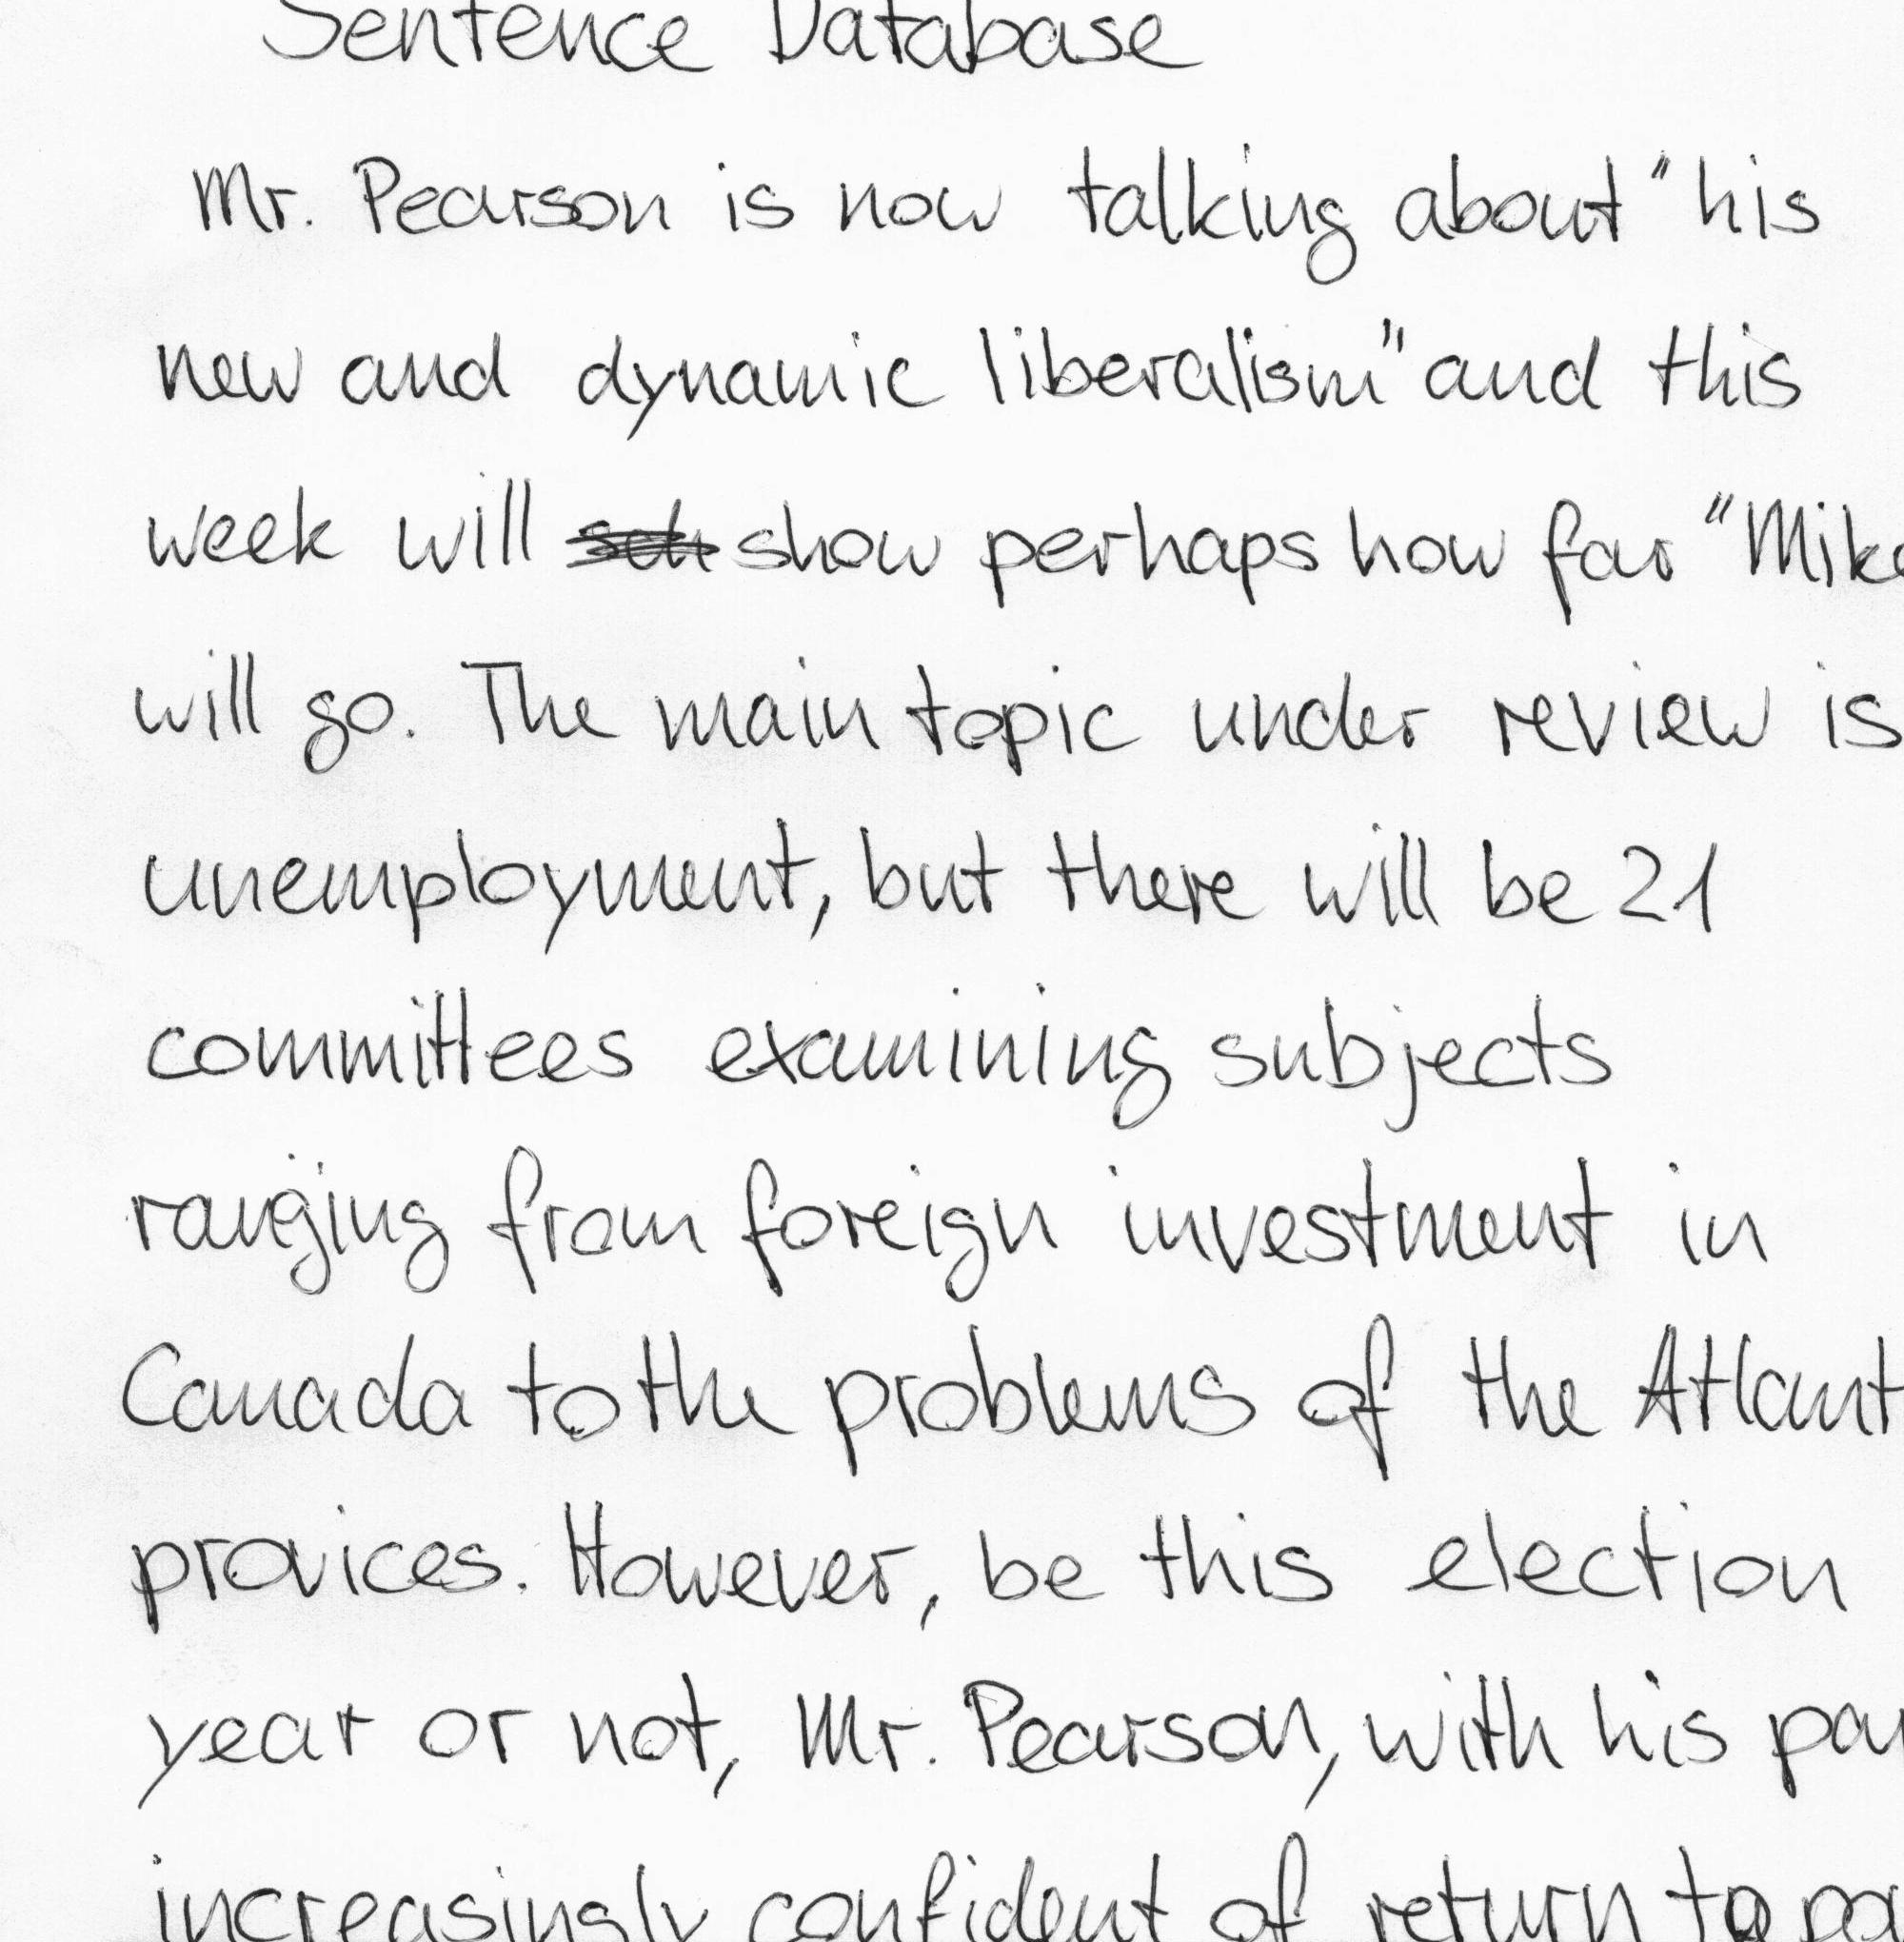 Sentence Database
Mr. Pearson is now talking about "his
new and dynamic liberalism" and this
week will show perhaps how far "Mike
will go. The main topic under review is
unemployment, but there will be 21
committees examining subjects
ranging from foreign investment in
Canada to the problems of the Atlant
provices. However, be this election
year or not, Mr. Pearson, with his
increasingly confident of return to